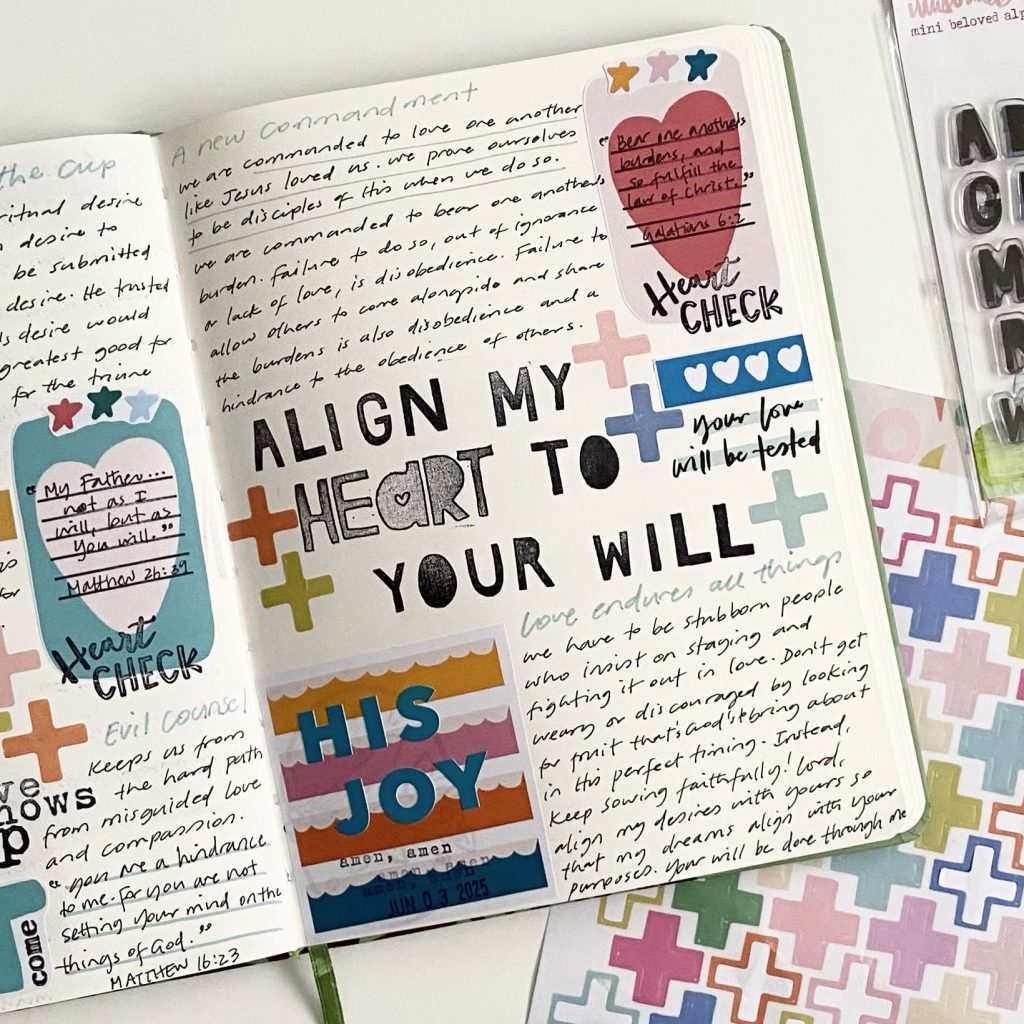 the Cup
ritual desire
desire to
be submitted
desire. He trusted
s desire would
greatest good for
for the triune
"My Father...
not as I
will, but as
you will."
Matthew 26:39
Heart
CHECK
Evil Counsel
keeps us from
the hard path
from misguided love
and compassion.
"you are a hindrance
to me. For you are not
setting your mind on the
things of God."
MATTHEW 16:23
come
A new commandment
we are commanded to love one another
like Jesus loved us. we prove ourselves
to be disciples of His when we do so.
we are commanded to bear one another's
burden. Failure to do so, out of ignorance
or lack of love, is disobedience. Failure to
allow others to come alongside and share
the burdens is also disobedience and a
hindrance to the obedience of others.
"Bear one another's
burdens, and
so fulfill the
law of Christ."
Galatians 6:2
Heart
CHECK
ALIGN MY
HEART TO
YOUR WILL
your love
will be tested
HIS
JOY
amen, amen
amen, amen
JUN 03 2025
Love endures all things
we have to be stubborn people
who insist on staging and
fighting it out in love. Don't get
weary or discouraged by looking
for fruit that's God's to bring about
in this perfect timing. Instead,
keep sowing faithfully! Lord,
align my desires with yours so
that my dreams align with your
purposes. Your will be done through me
mini beloved alp
A
G
M